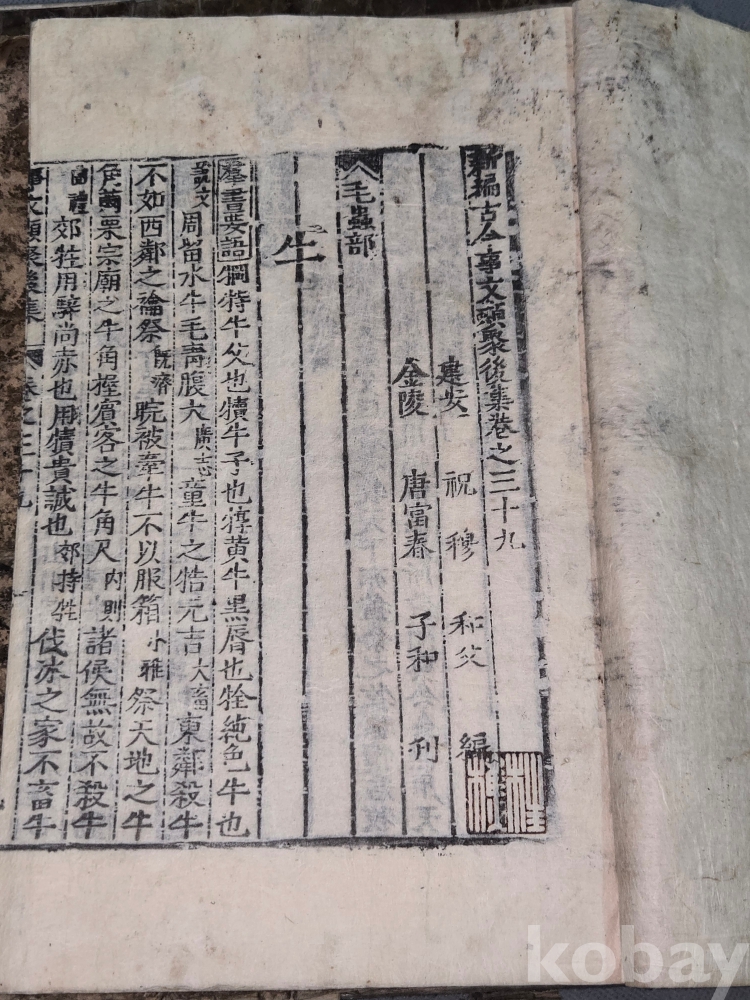 新編古今事文類聚後集卷之三十九
建安 祝穆 和父 編
金陵 唐富春 子和 刊
毛蟲部
牛
羣書要語 犅特牛父也犢牛子也犉黃牛黑脣也牷純色牛也
說文 周留水牛毛靑腹大 廣志 童牛之牿元吉 大畜 東鄰殺牛
不如西鄰之禴祭 旣濟 睆被牽牛不以服箱 小雅 祭天地之牛
角繭栗宗廟之牛角握賓客之牛角尺 內則 諸侯無故不殺牛
曲禮 郊牲用騂尚赤也用犢貴誠也 郊特牲 伐冰之家不畜牛
事文類聚後集 卷之三十九
kobay